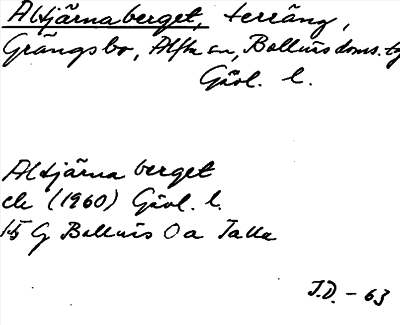 Altjärnaberget, terräng,
Grängsbo, Alfta sn, Bollnäs doms.tg
Gävl. l.
Altjärnaberget
ek (1960) Gävl. l.
15 G Bollnäs Oa Talla
I.D. - 63